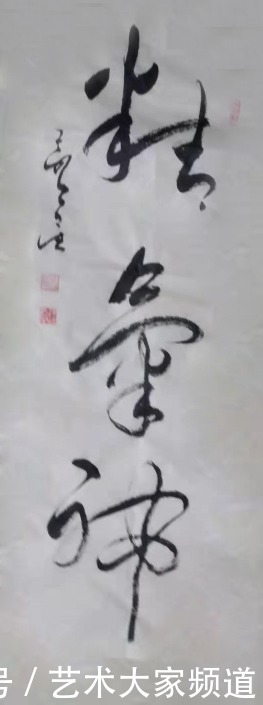 精氣神
号 / 艺术大家频道